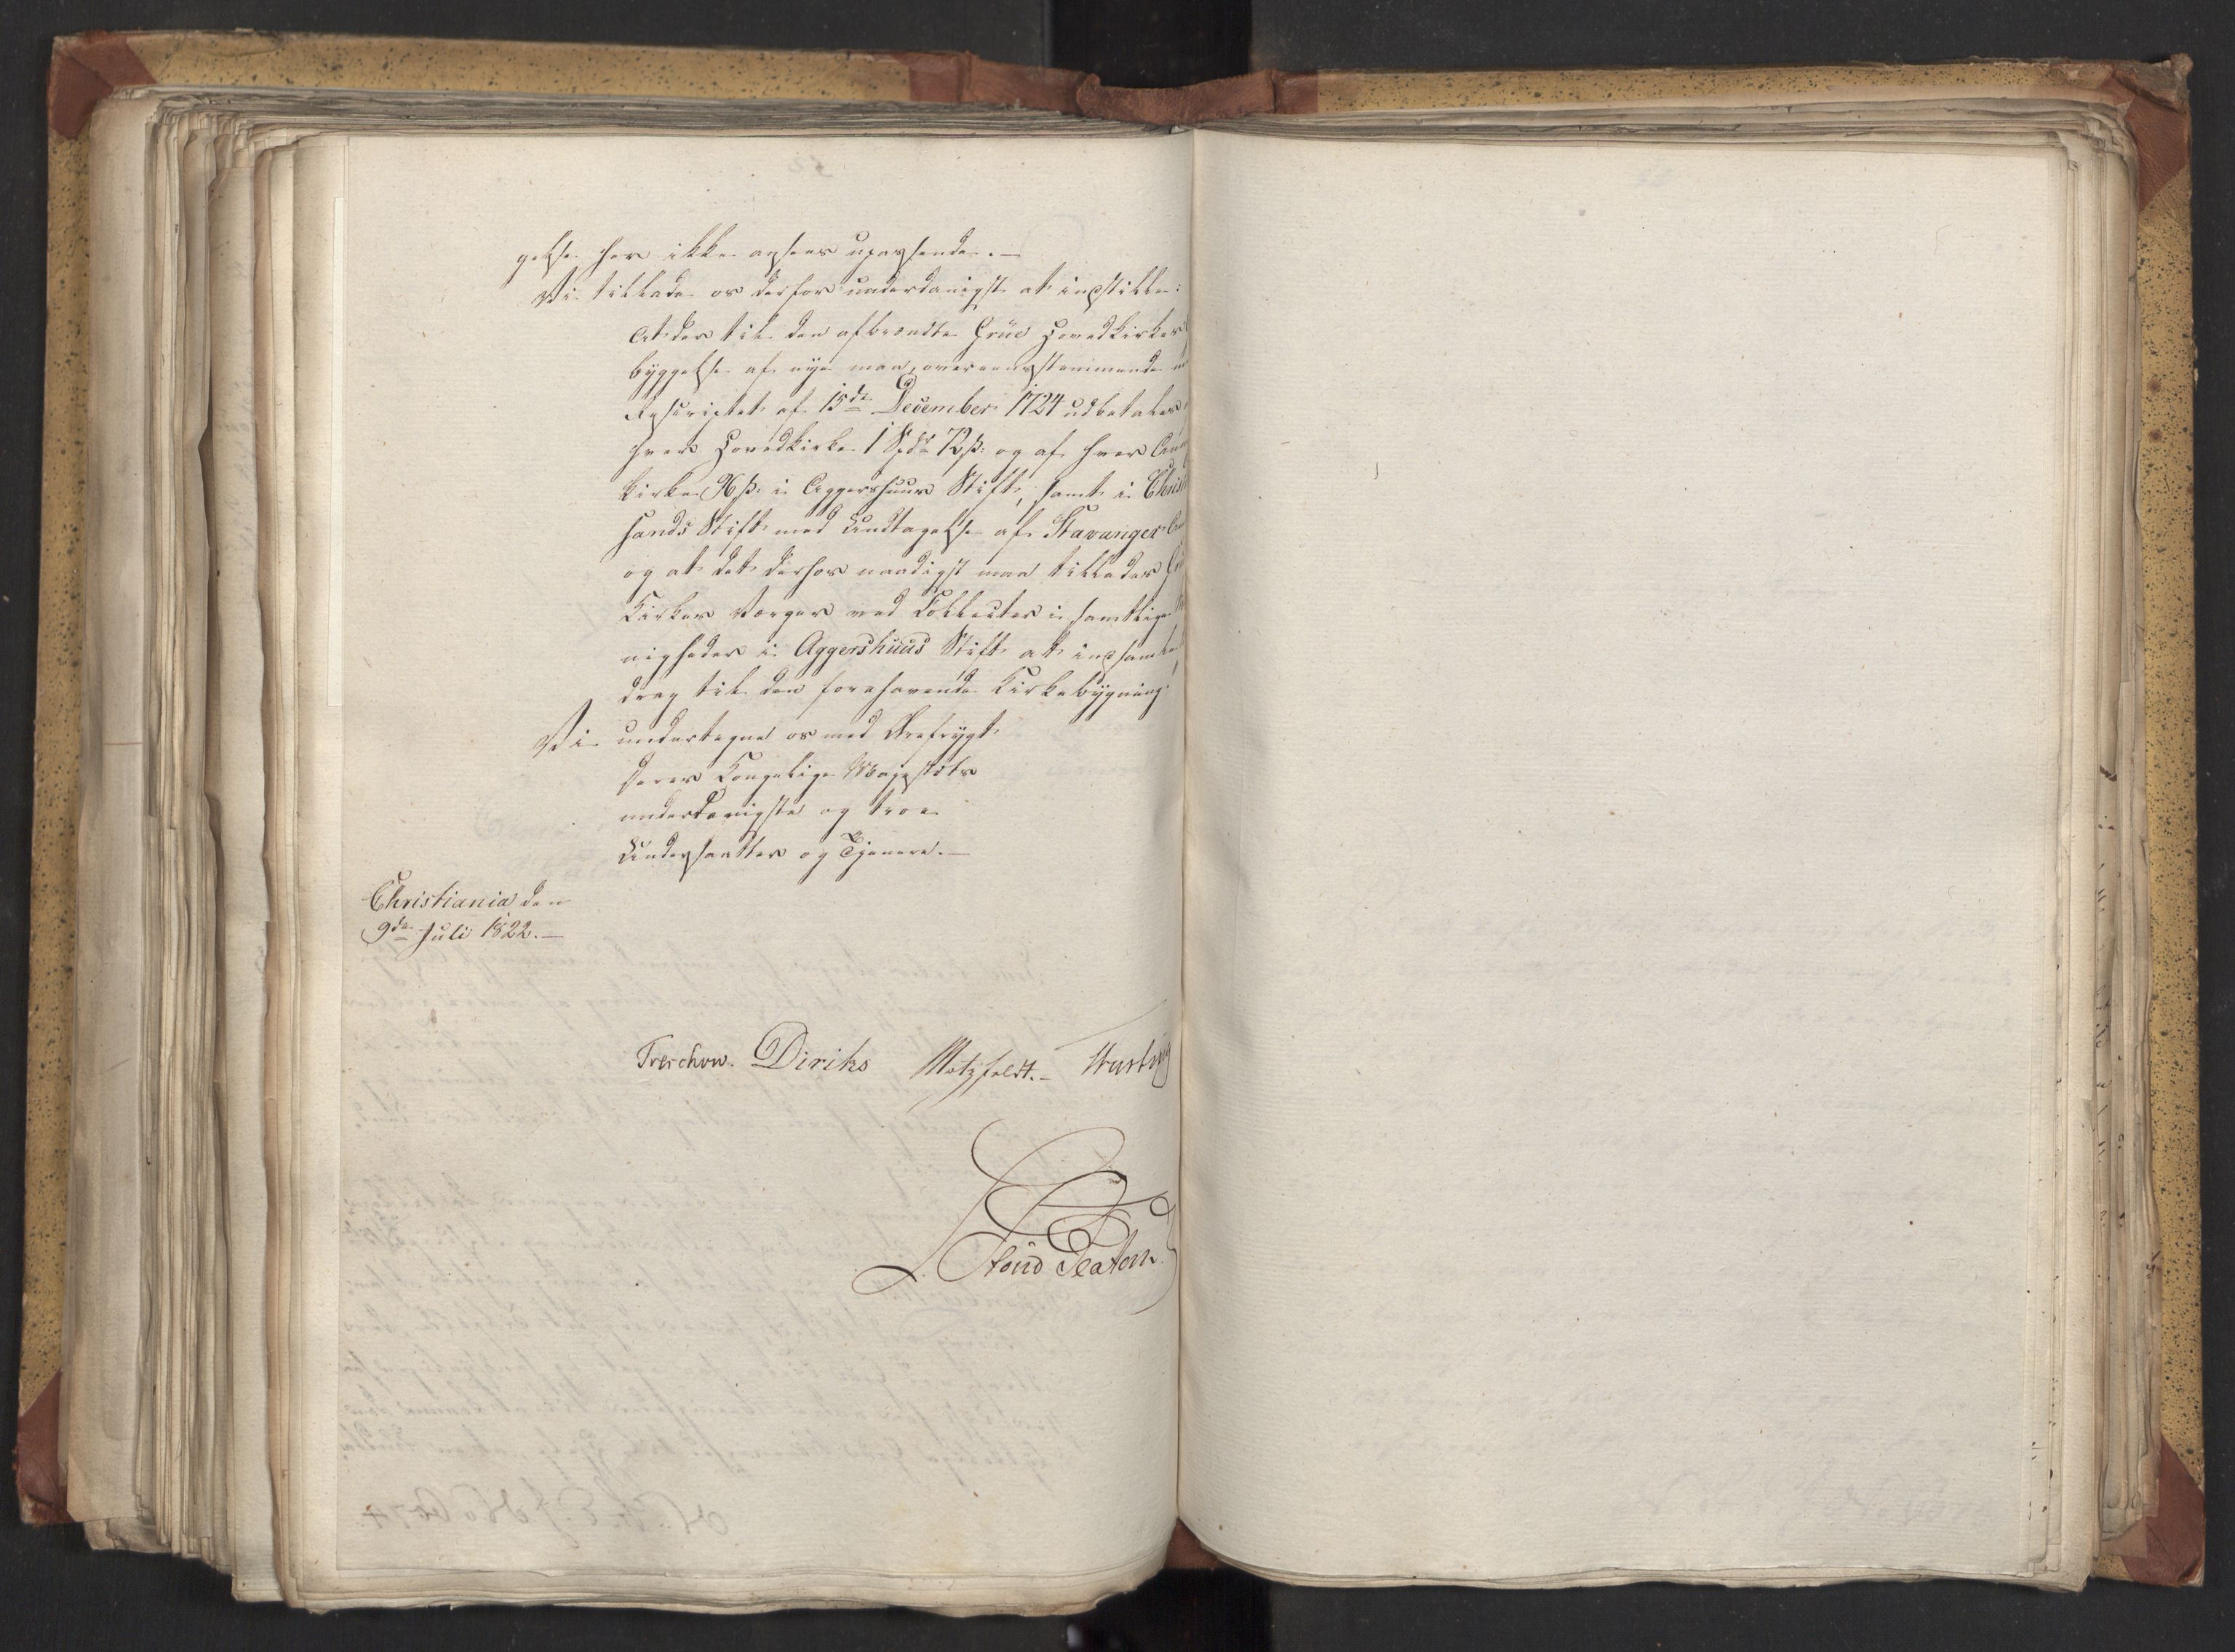 gelse her ikke ansees upassende.—
Vi tillade os derfor underdanigst at indstille:
At der til den afbrændte Grue Hovedkirkes
byggelse af nye maa, overeensstemmende
Rescriptet af 15de December 1724 udbetales
hver Hovedkirke 1 Spd 72 ß: og af hver
kirke 96 ß. i Aggershuus Stift, samt i Christ
sands Stift med Undtagelse af Stavanger
og at det derhos naadigst maa tillades
Kirkes Værger ved Collecter i samtlige
nigheder i Aggershuus Stift at indsamle
drag til den forehavende Kirkebygning.
Vi undertegne os med Ærefrygt
Deres Kongelige Majestæts
underdanigste og troe
Undersaatter og Tjenere.—
Christiania den
9de Juli 1822.—
Treschow. Diriks Motzfeldt.—